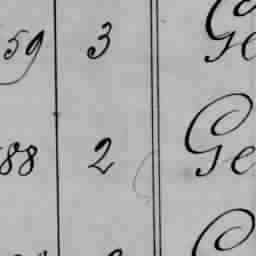 59 3 Ge
88 2 Ge